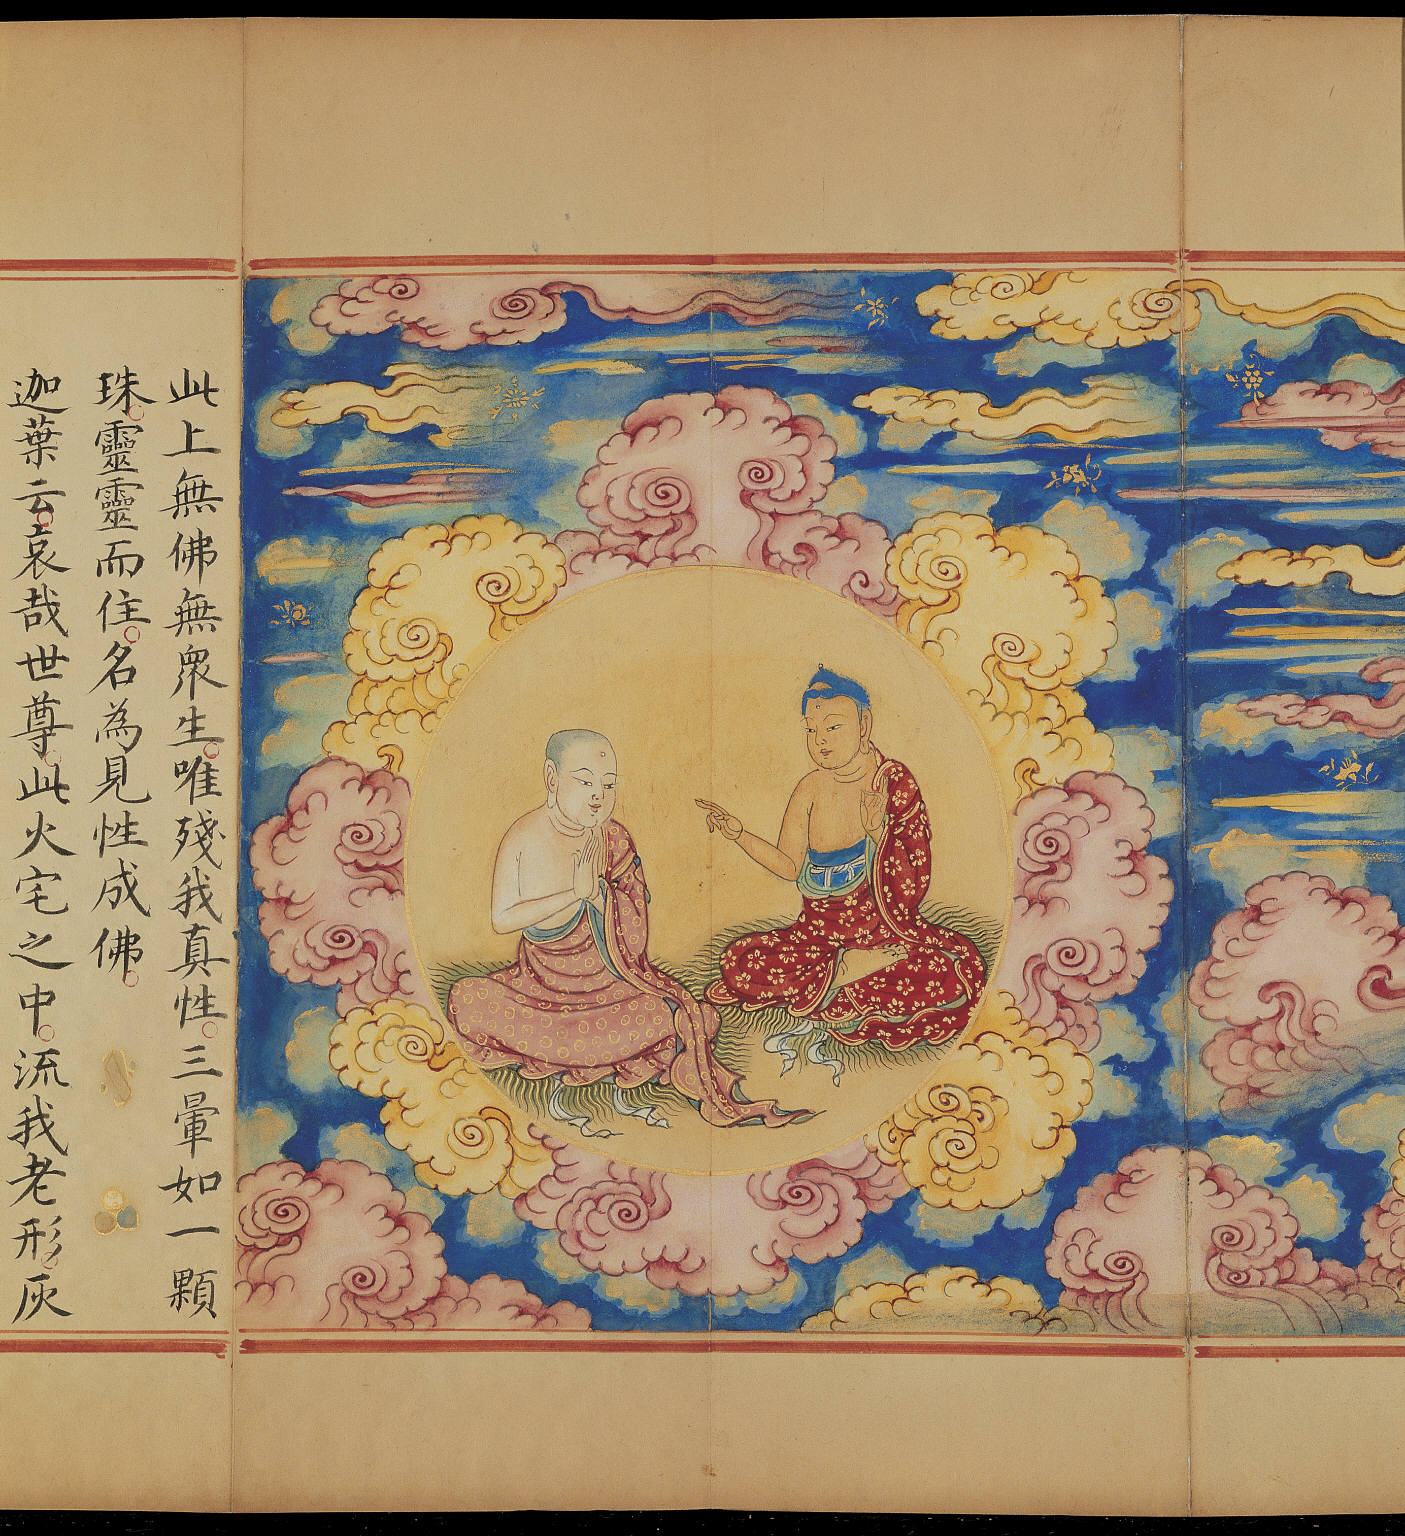 此上無佛無衆生。唯殘我真性。三暈如一顆
珠。靈靈而住。名為見性成佛。
迦葉云。哀哉世尊。此火宅之中。流我老形。灰